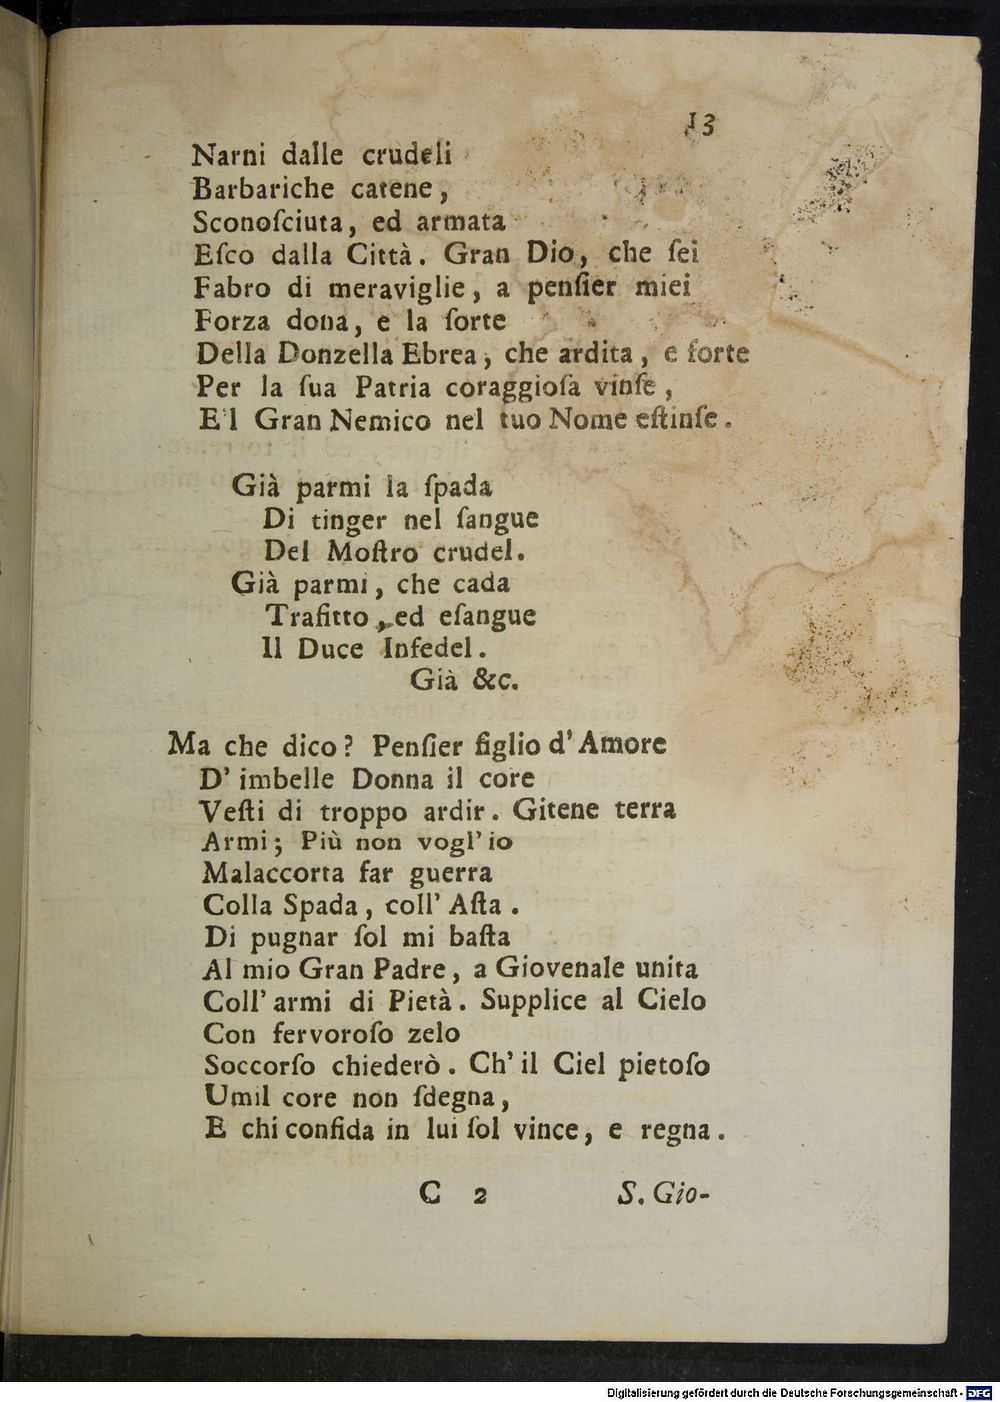 13
Narni dalle crudeli
Barbariche catene,
Sconoſciuta, ed armata
Eſco dalla Città. Gran Dio, che ſei
Fabro di meraviglie, a penſier miei
Forza dona, e la ſorte
Della Donzella Ebrea, che ardita, e forte
Per la ſua Patria coraggioſa vinſe,
E'l Gran Nemico nel tuo Nome eſtinſe.
Già parmi la ſpada
Di tinger nel ſangue
Del Moſtro crudel.
Già parmi, che cada
Trafitto, ed eſangue
Il Duce Infedel.
Già &c.
Ma che dico? Penſier figlio d'Amore
D' imbelle Donna il core
Veſti di troppo ardir. Gitene terra
Armi; Più non vogl' io
Malaccorta far guerra
Colla Spada, coll' Aſta.
Di pugnar ſol mi baſta
Al mio Gran Padre, a Giovenale unita
Coll' armi di Pietà. Supplice al Cielo
Con fervoroſo zelo
Soccorſo chiederò. Ch' il Ciel pietoſo
Umil core non ſdegna,
E chi confida in lui ſol vince, e regna.
C 2 S. Gio-
Digitalisierung gefördert durch die Deutsche Forschungsgemeinschaft - DFG